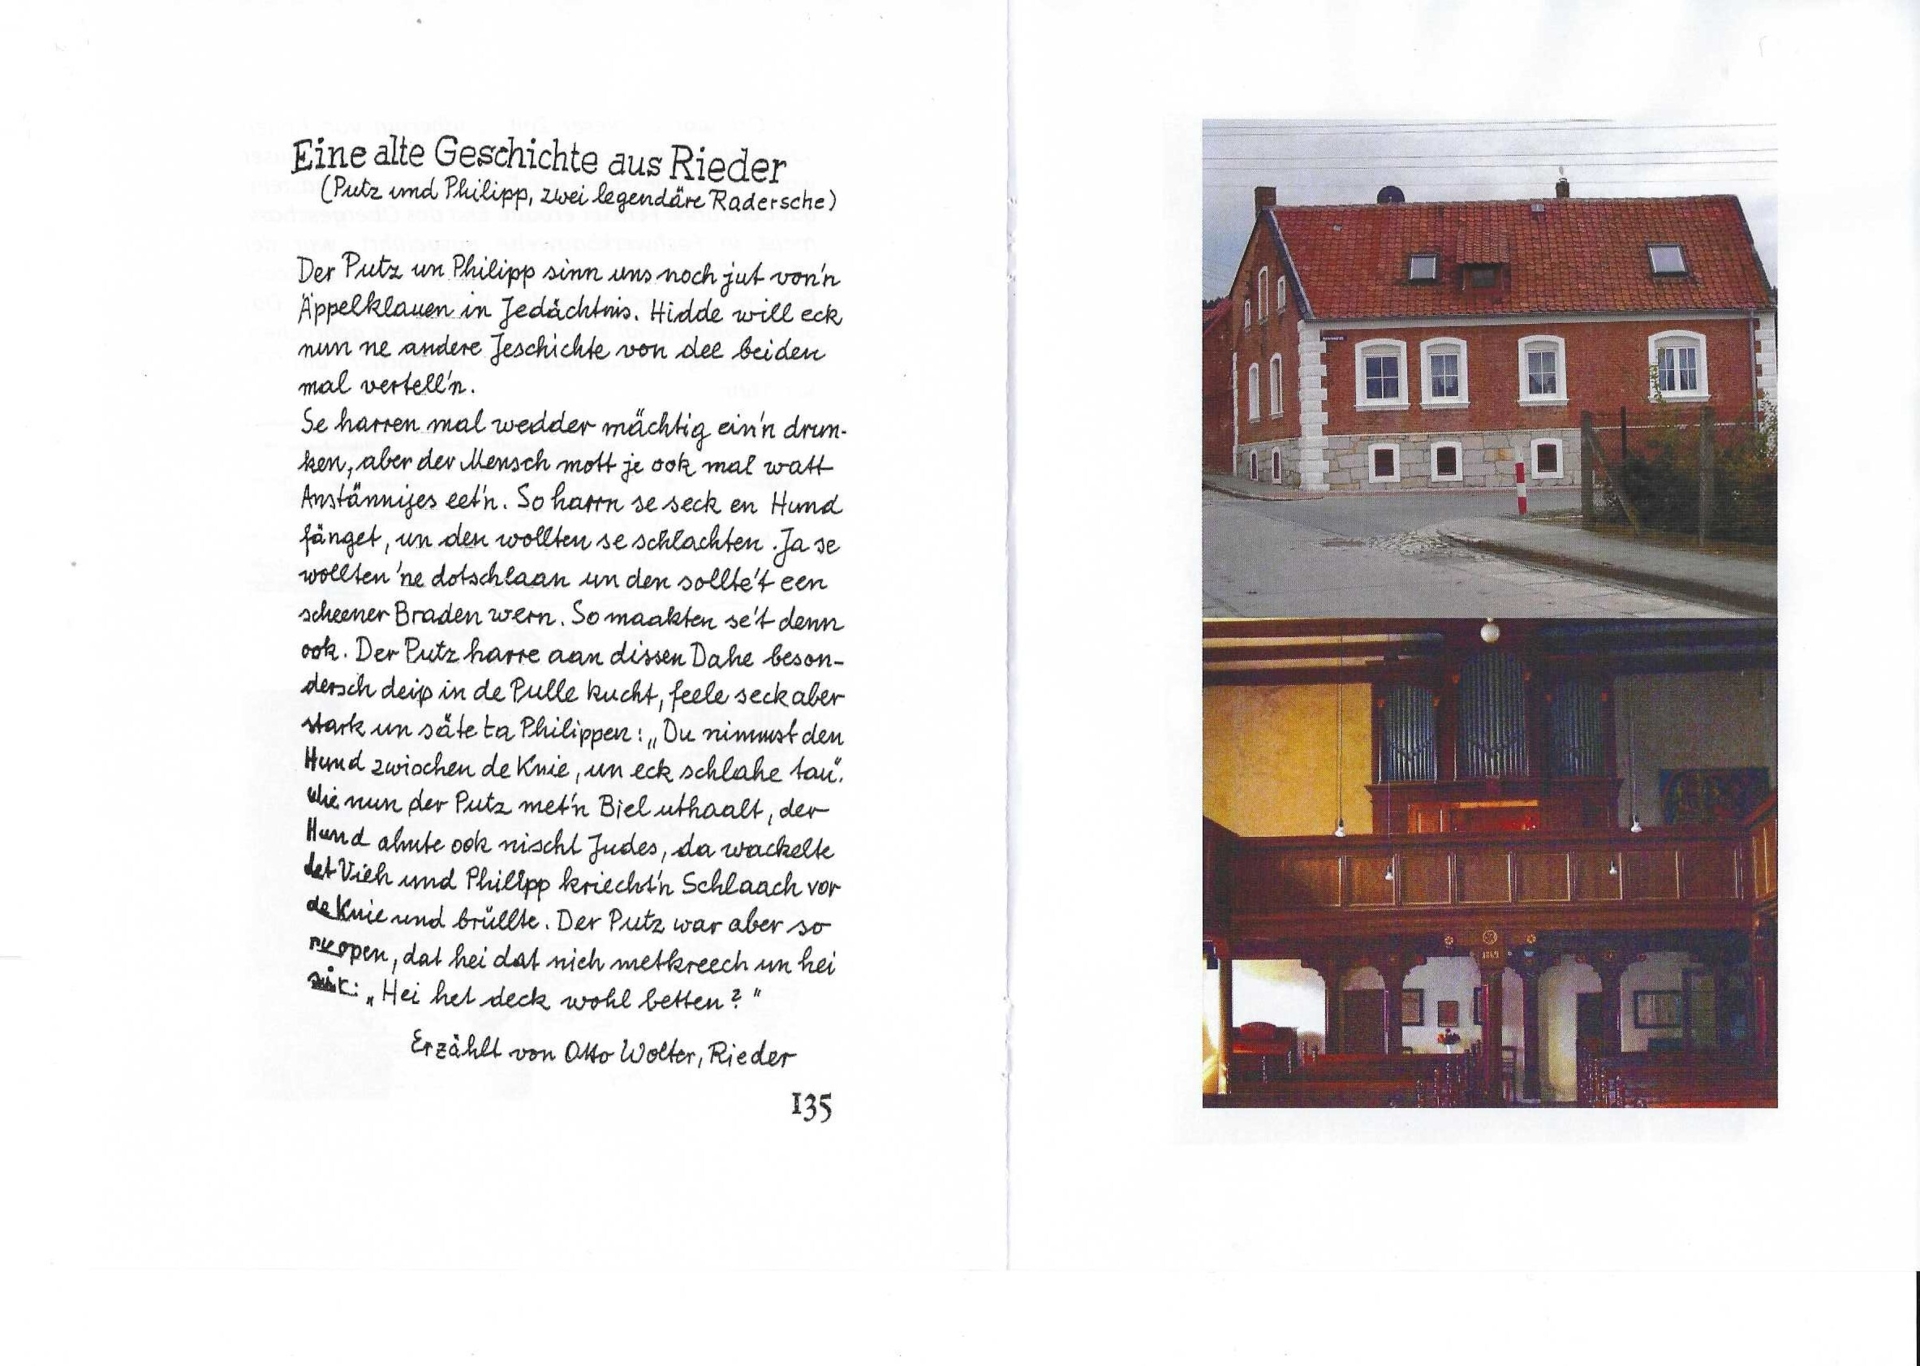 Eine alte Geschichte aus Rieder
(Putz und Philipp, zwei legendäre Radersche)
Der Putz un Philipp sinn uns noch jut von'n
Äppelklauen in Jedächtnis. Hidde will eck
nun ne andere Jeschichte von dee beiden
mal vertell'n.
Se harren mal wedder mächtig ein'n drun-
ken, aber der Mensch mott je ook mal watt
Anstännijes eet'n. So harrn se seck en Hund
fänget, un den wollten se schlachten. Ja se
wollten 'ne dotschlaan un den sollte't een
scheener Braden wern. So maakten se't denn
ook. Der Putz harre aan dissen Dahe beson-
dersch deip in de Pulle kucht, feele seck aber
stark un säte ta Philippen: „Du nimmst den
Hund zwischen de Knie, un eck schlahe tau".
Wie nun der Putz met'n Biel uthaalt, der
Hund ahnte ook nischt Judes, da wackelte
det Vieh und Philipp kriecht'n Schlaach vor
de Knie und brüllte. Der Putz war aber so
open, dat hei dat nich metkreech un hei
„Hei het deck wohl betten?"
Erzählt von Otto Wolter, Rieder
135
1849